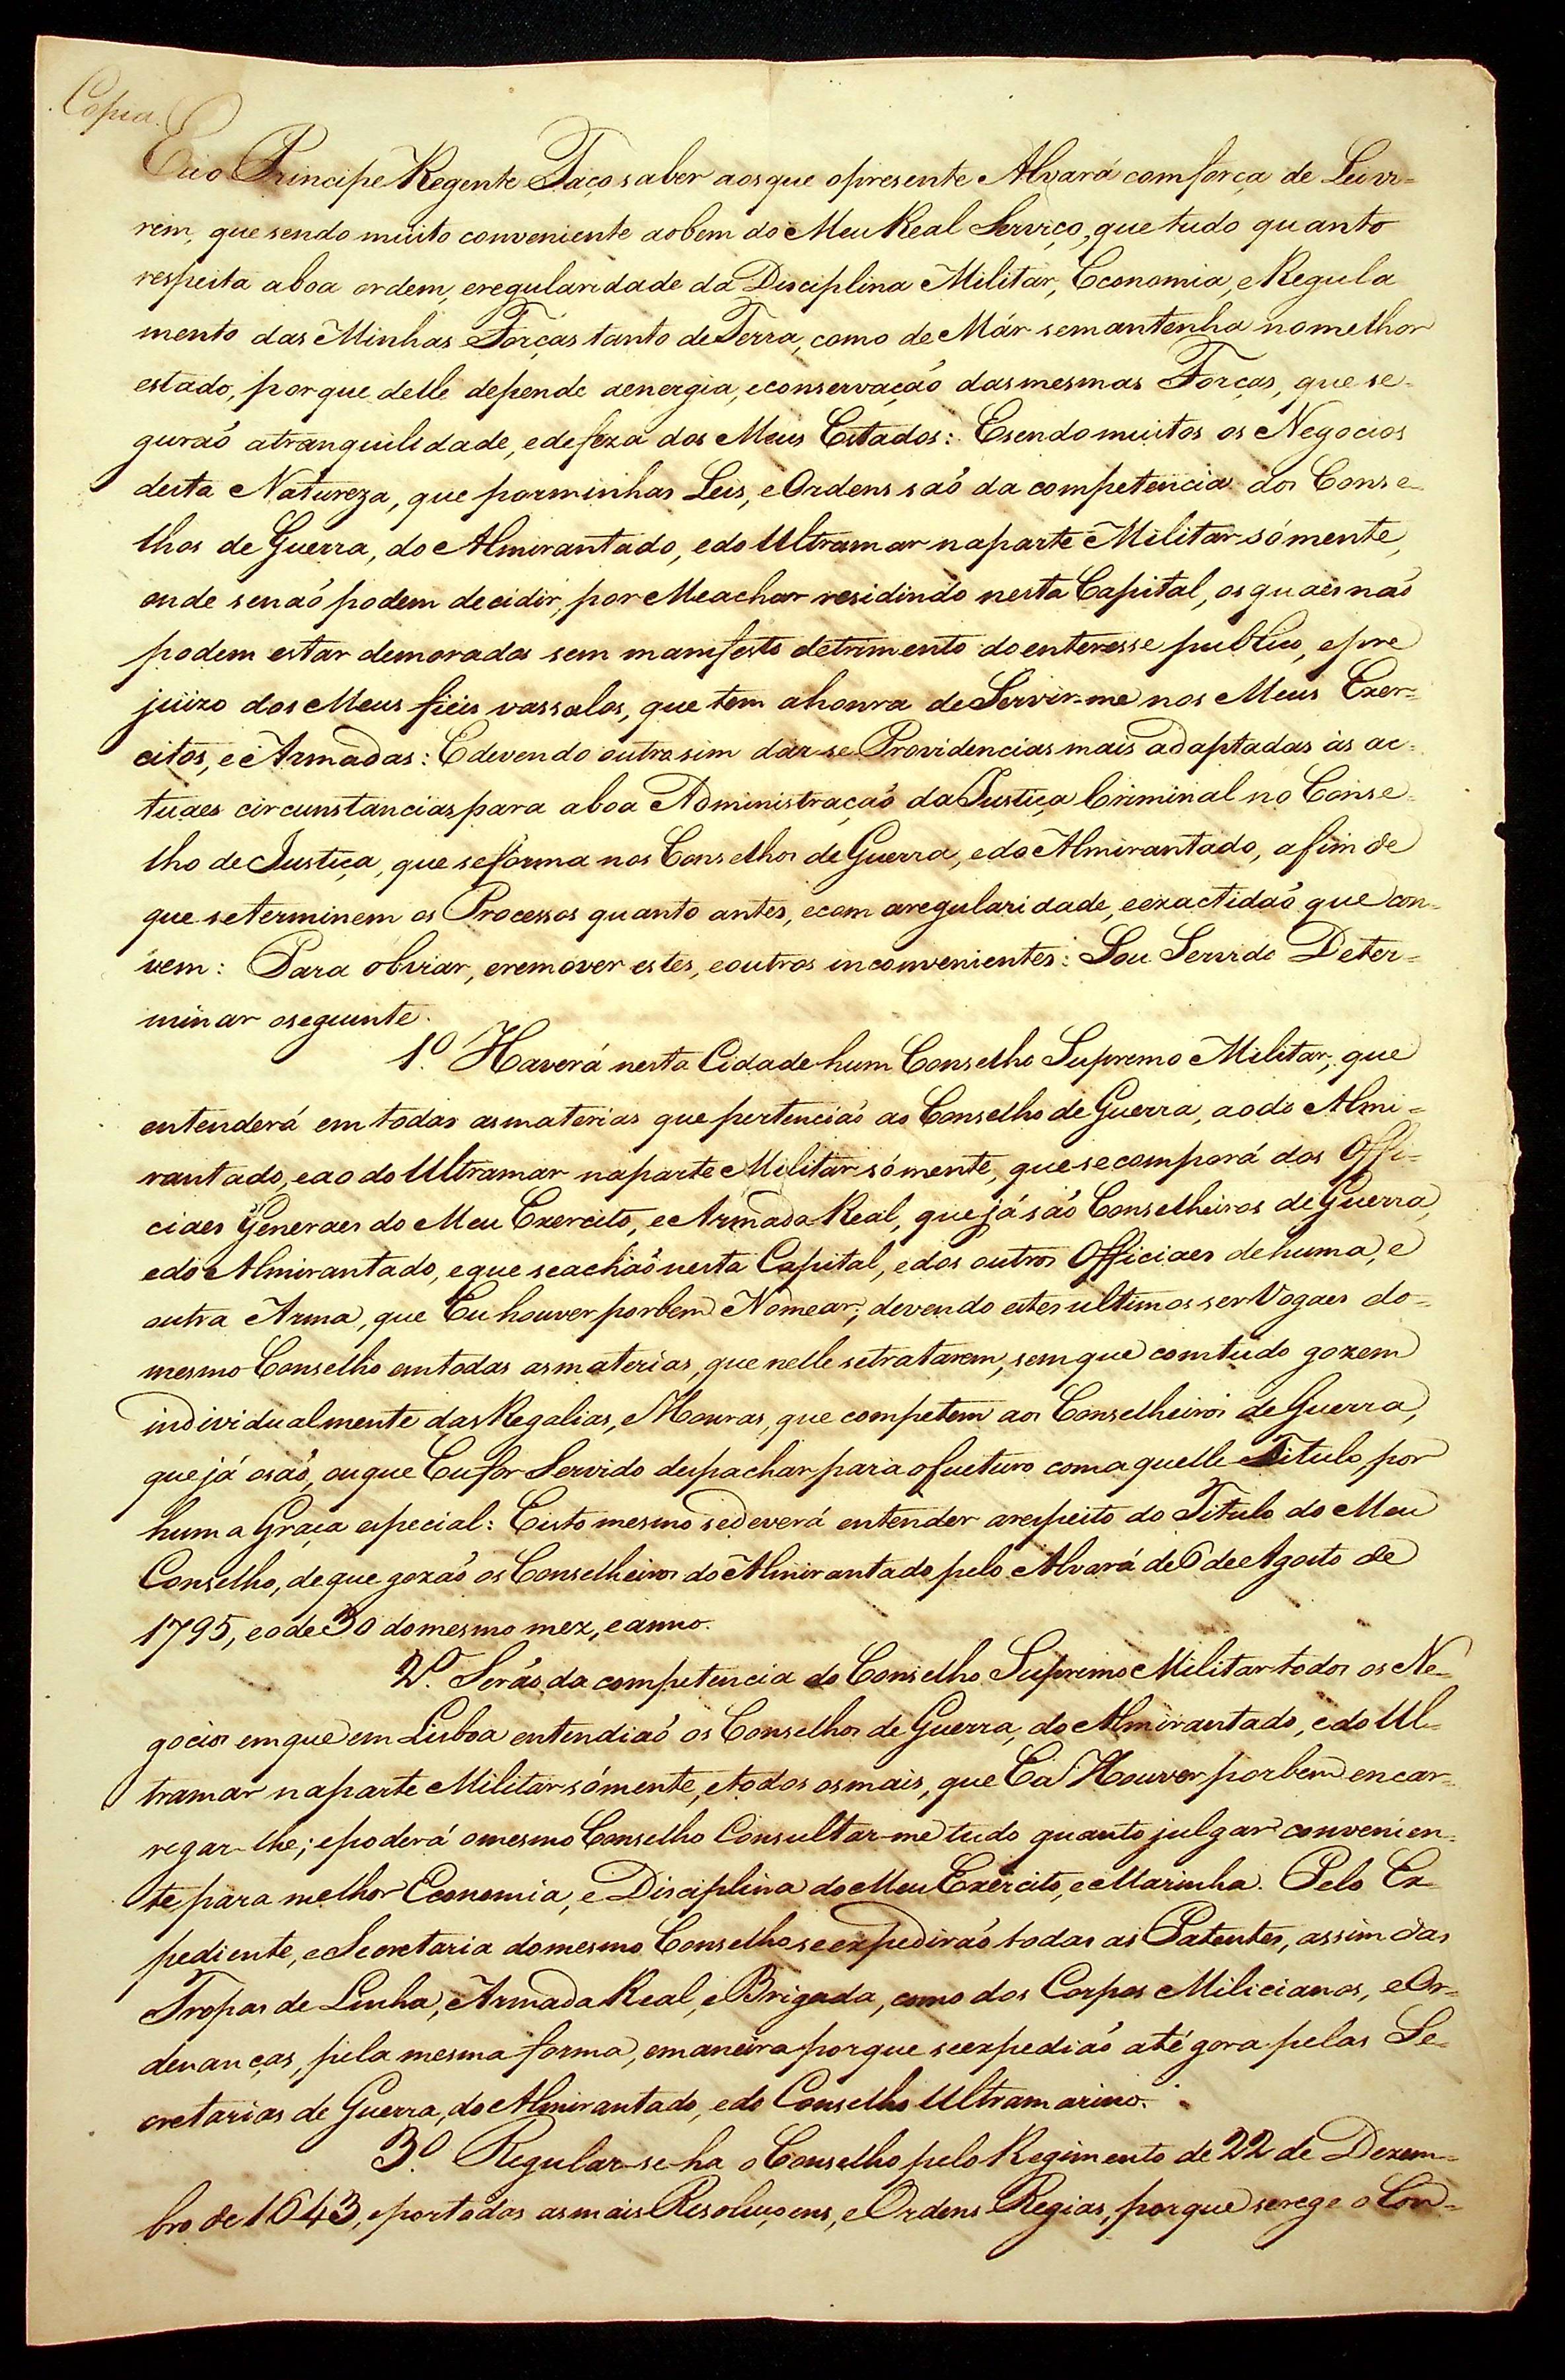 Copia.
Eu o Principe Regente Faço saber aos que o presente Alvará com força de Lei vi=
rem, que sendo muito conveniente ao bem do Meu Real Serviço, que tudo quanto
respeita a boa ordem, e regularidade da Disciplina Militar, Economia, e Regula
mento das Minhas Forças tanto de Terra, como de Már se mantenha no melhor
estado, porque delle depende a energia, e conservação das mesmas Forças, que se-
gurão a tranquilidade, e defeza dos Meus Estados: E sendo muitos os Negocios
desta Natureza, que por minhas Leis, e Ordens são da competencia dos Conse-
lhos de Guerra, do Almirantado, e do Ultramar na parte Militar sómente,
onde se não podem decidir, por Me achar residindo nesta Capital, os quaes não
podem estar demorados sem manifesto detrimento do enteresse publico, e pre
juizo dos Meus fieis vassalos, que tem a honra de Servir-me nos Meus Exer=
citos, e Armadas: E devendo outro sim dar-se Providencias mais adaptadas às ac=
tuaes circunstancias para a boa Administração da Justiça Criminal no Conse=
lho de Justiça, que se forma nos Conselhos de Guerra, e do Almirantado, a fim de
que se terminem os Processos quanto antes, e com a regularidade, e exactidão que con-
vem: Para obviar, e remover estes, e outros inconvenientes: Sou Servido Deter=
minar o seguinte.
1º. Haverá nesta Cidade hum Conselho Supremo Militar, que
entenderá em todas as materias que pertencião ao Conselho de Guerra, ao do Almi=
rantado, e ao do Ultramar na parte Militar sómente, que se comporá dos Offi=
ciaes Generaes do Meu Exercito, e Armada Real, que já são Conselheiros de Guerra,
e do Almirantado, e que se achão nesta Capital, e dos outros Officiaes de huma, e
outra Arma, que Eu houver por bem Nomear; devendo estes ultimos ser Vogaes do=
mesmo Conselho em todas as materias, que nelle se tratarem, sem que com tudo gozem
individualmente das Regalias, e Honras, que competem aos Conselheiros de Guerra,
que já o são, ou que Eu for Servido despachar para o fucturo com aquelle Titulo, por
huma Graça especial: E isto mesmo se deverá entender a respeito do Titulo do Meu
Conselho, de que gozão os Conselheiros do Almirantado pelo Alvará de 6 de Agosto de
1795, e o de 30 do mesmo mez, e anno.
2º. Serão da competencia do Conselho Supremo Militar todos os Ne-
gocios em que em Lisboa entendião os Conselhos de Guerra, do Almirantado, e do Ul=
tramar na parte Militar sómente, e todos os mais, que Eu Houver por bem encar-
regar-lhe; e poderá o mesmo Conselho Consultar-me tudo quanto julgar convenien=
te para melhor Economia, e Disciplina do Meu Exercito, e Marinha. Pelo Ex-
pediente, e Secretaria do mesmo Conselho se expedirão todas as Patentes, assim das
Tropas de Linha, Armada Real, e Brigada, como dos Corpos Milicianos, e Or=
denanças, pela mesma forma, e maneira porque se expedião até gora pelas Se-
cretarias de Guerra, do Almirantado, e do Conselho Ultramarino.
3º. Regular-se-ha o Conselho pelo Regimento de 22 de Dezem-
bro de 1643, e por todas as mais Resoluçoens, e Ordens Regias, porque se rege o Con=